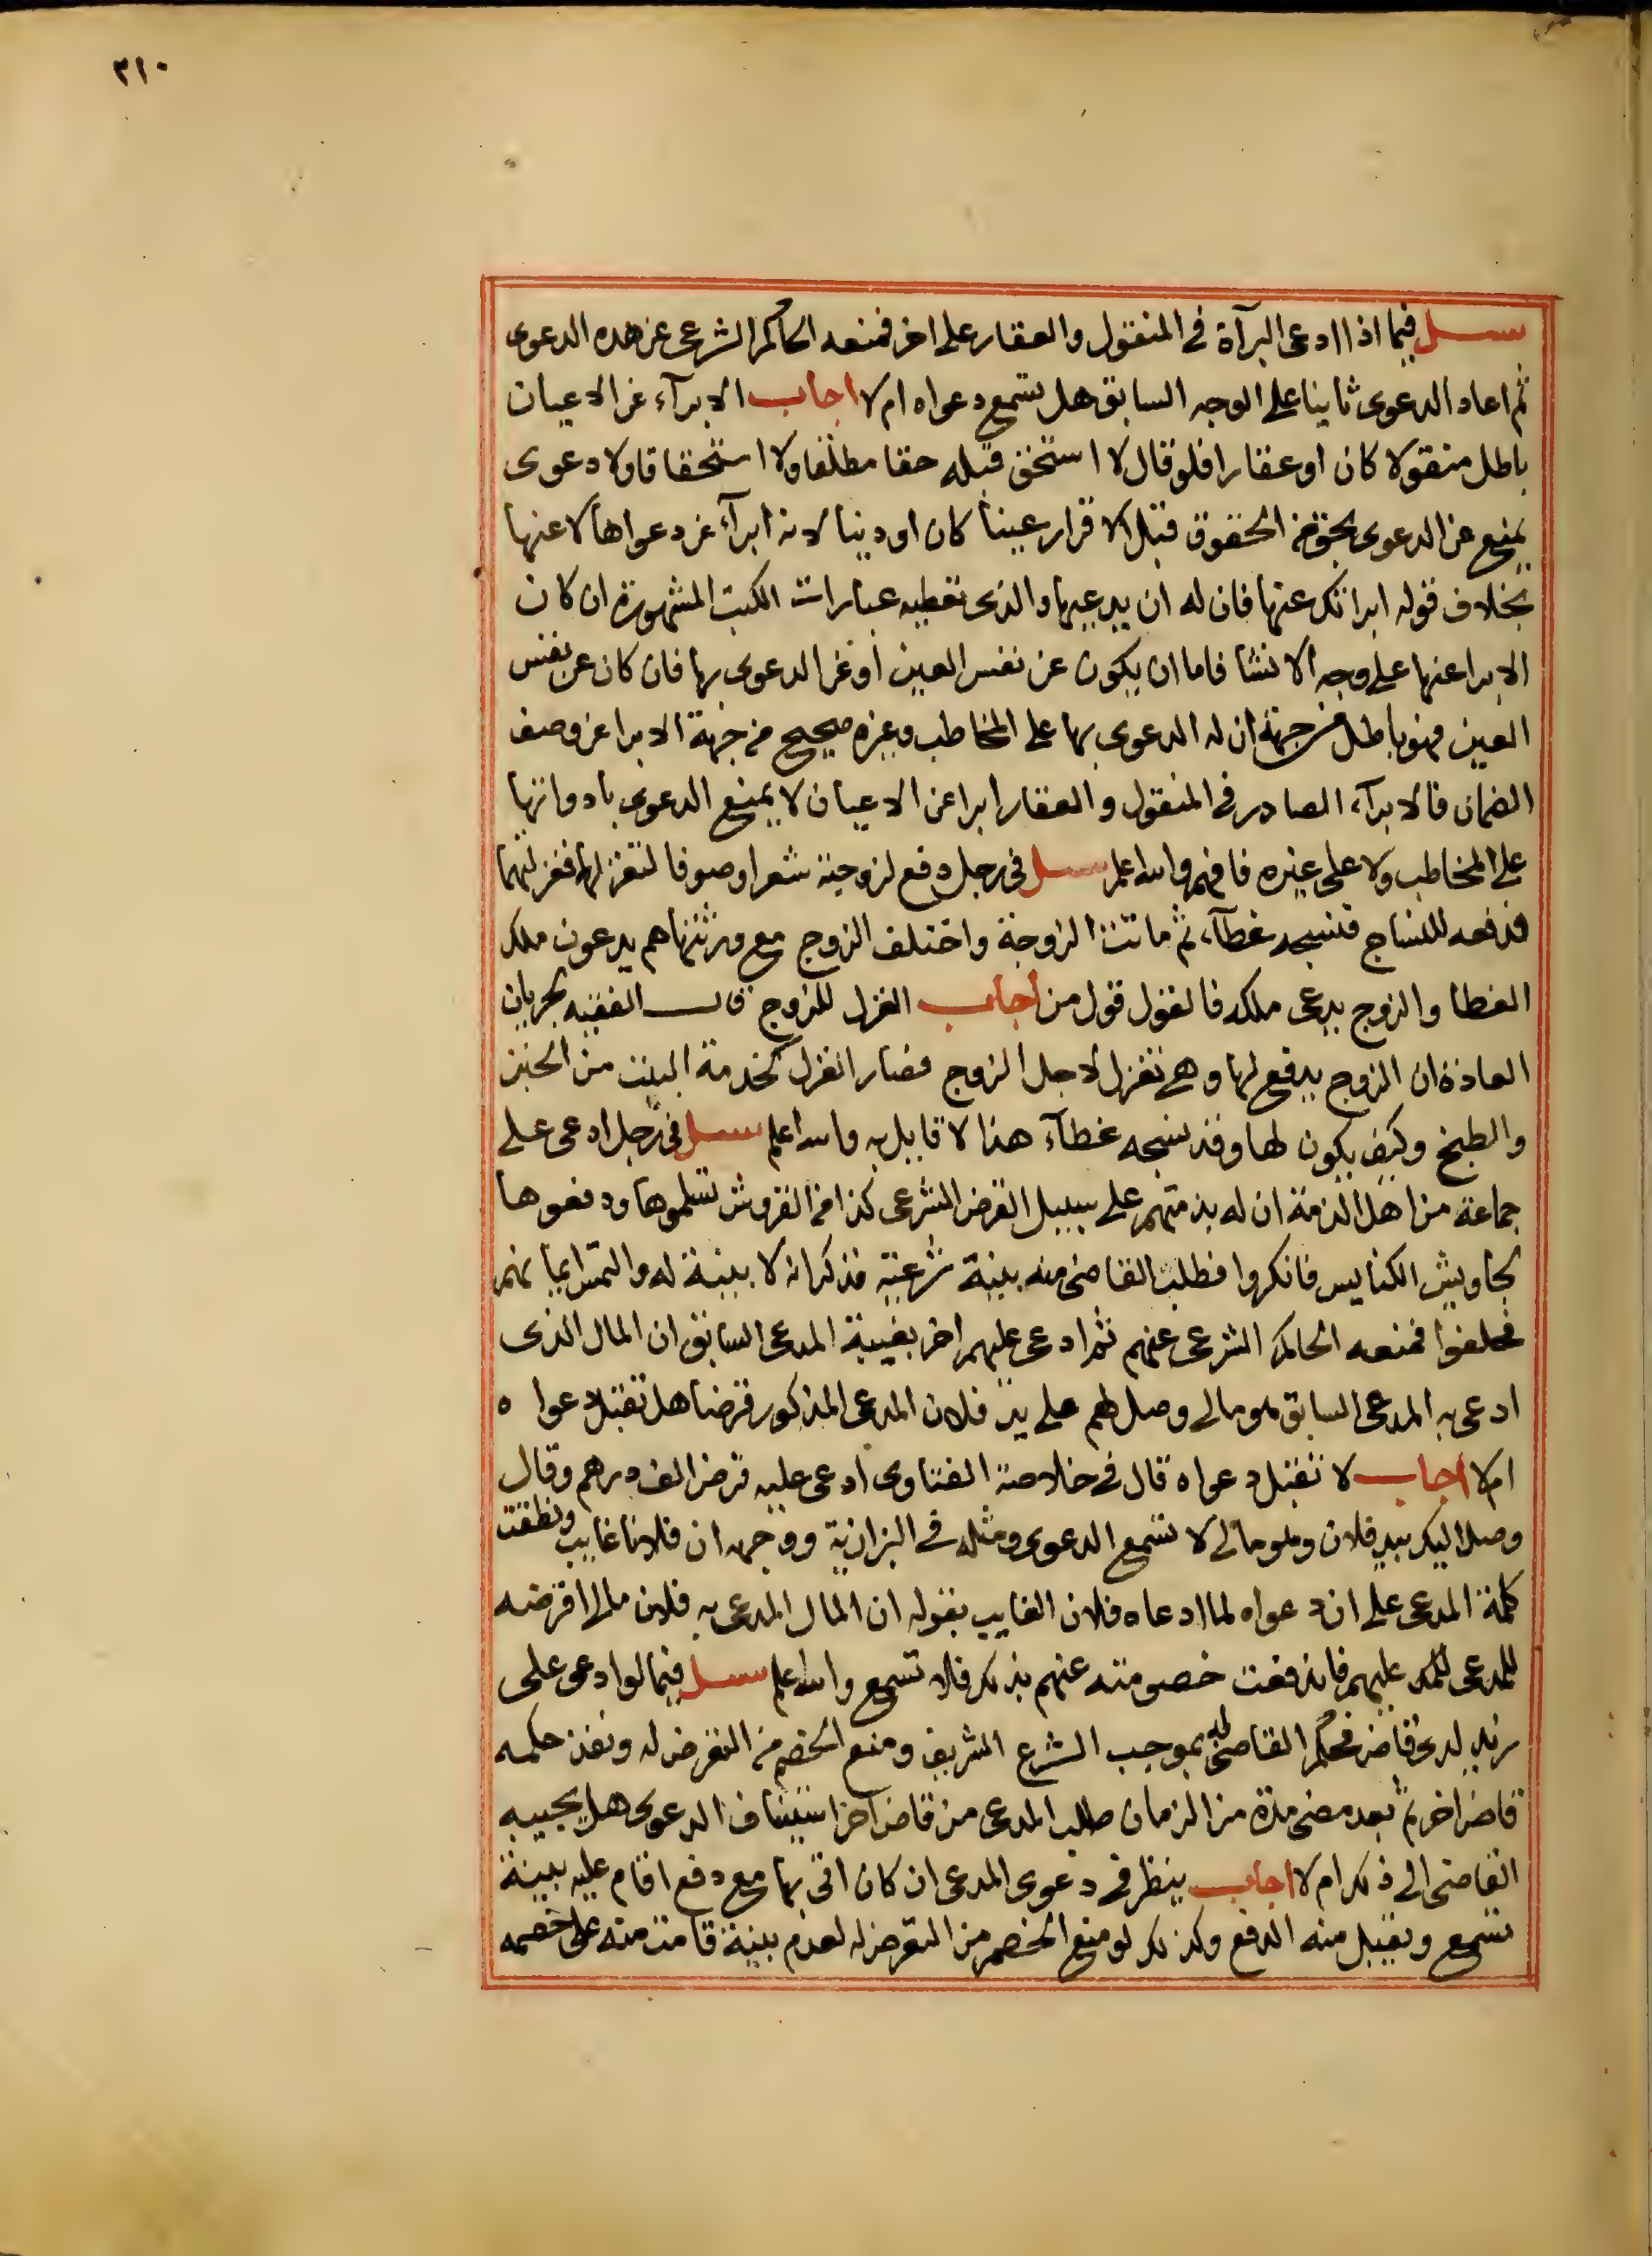 ٢١٠
سئل فيما اذا ادعى البرآة في المنقول والعقار على اخر فمنعه الحاكم الشرعى عن هذه الدعوى
ثم اعاد الدعوى ثانيا على الوجه السابق هل تسمع دعواه ام لا اجاب الابرآء عن الاعيان
باطل منقولا كان او عقارا فلو قال لا استحق قبله حقا مطلقا ولا استحقاقا ولا دعوى
يمنع من الدعوى بحق من الحقوق قبل الاقرار عينا كان او دينا لانه ابرآء عن دعواها لا عنها
بخلاف قوله ابراتك عنها فان له ان يدعيها والذى تعطيه عبارات الكتب المشهورة ان كان
الابرا عنها على وجه الانشا فاما ان يكون عن نفس العين او عن الدعوى بها فان كان عن نفس
العين فهو باطل من جهة ان له الدعوى بها على المخاطب وغيره صحيح من جهة الابرا عن وصف
الضمان فالابرآء الصادر في المنقول والعقار ابرا عن الاعيان لا يمنع الدعوى بادواتها
على المخاطب ولا على غيره فافهم والله اعلم سئل في رجل دفع لزوجته شعرا وصوفا لتغزلهما فغزلتهما
فدفعه للنساج فنسجه غطآء ثم ماتت الزوجة واختلف الزوج مع ورثتها هم يدعون ملك
الغطا والزوج يدعى ملكه فالقول قول من اجاب الغزل للزوج قال الفقيه بجريان
العادة ان الزوج يدفع لها وهى تغزل لاجل الزوج فصار الغزل كخدمة البيت من الخبز
والطبخ وكيف يكون لها وقد نسجه غطآء هذا لا قايل به والله اعلم سئل في رجل ادعى على
جماعة من اهل الذمة ان له بذمتهم على سبيل القرض الشرعى كذا من القروش تسلموها ودفعوها
لجاويش الكنايس فانكروا فطلب القاضى منه بينة شرعية فذكر انه لا بينة له والتمس ايمانهم
فحلفوا فمنعه الحاكم الشرعى عنهم ثم ادعى عليهم اخر بغيبة المدعى السابق ان المال الذى
ادعى به المدعى السابق هو مالى وصل لهم على يد فلان المدعى المذكور قرضا هل تقبل دعواه
ام لا اجاب لا تقبل دعواه قال في خلاصة الفتاوى ادعى عليه قرض الف درهم وقال
وصل اليك بيد فلان وهو مالى لا تسمع الدعوى ومثله في البزازية ووجهه ان فلانا غايب ونطقت
كلمة المدعى على ان دعواه لما ادعاه فلان الغايب بقوله ان المال المدعى به فلان مالى اقرضه
للمدعى عليهم فاندفعت خصومته عنهم بذلك فلا تسمع والله اعلم سئل فيما لو ادعى على
زيد لدى قاض فحكم القاضى له بموجب الشرع الشريف ومنع الخصم من التعرض له ونفذ حكمه
قاض اخر ثم بعد مضى مدة من الزمان طلب المدعى من قاض آخر استيناف الدعوى هل يجيبه
القاضى الى ذلك ام لا اجاب ينظر في دعوى المدعى ان كان اتى بها مع دفع اقام عليه بينة
تسمع ويقبل منه الدفع وكذلك لو منع الخصم من التعرض له لعدم بينة قامت منه على خصمه